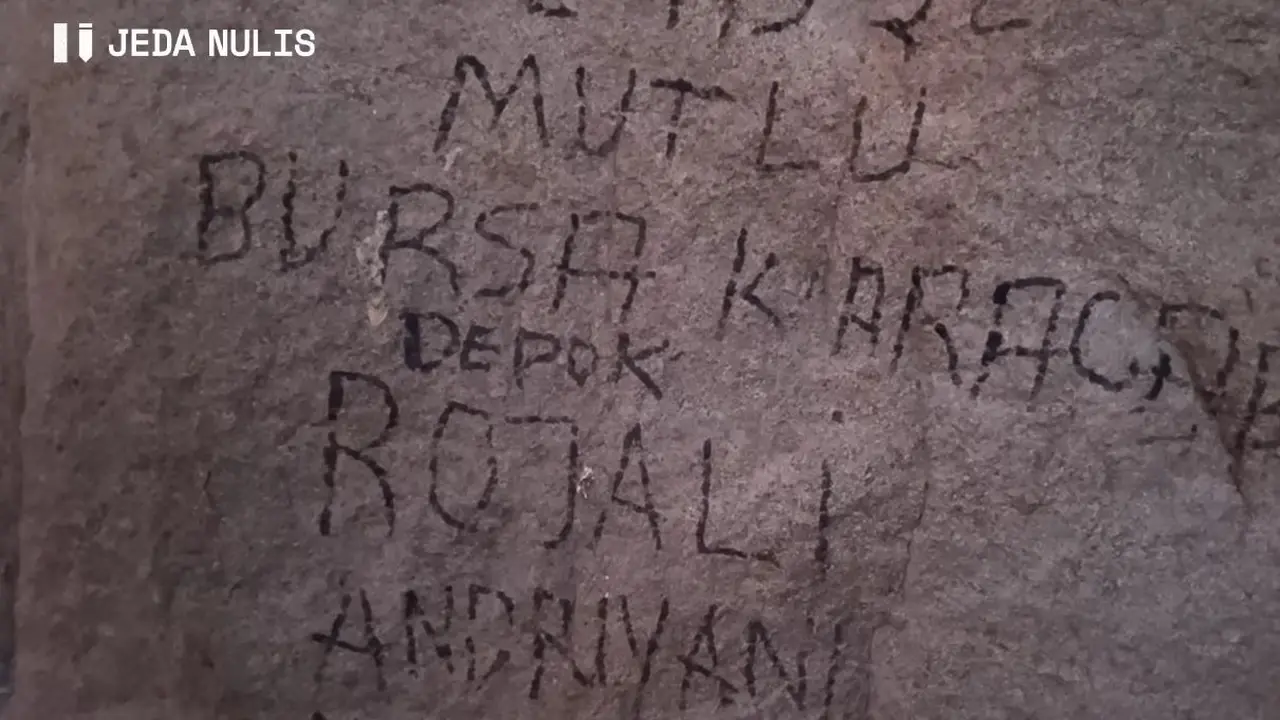 JEDA NULIS
MUTLU
BURSA KARAC
DEPOK
ROJALi
ANDRIYANI